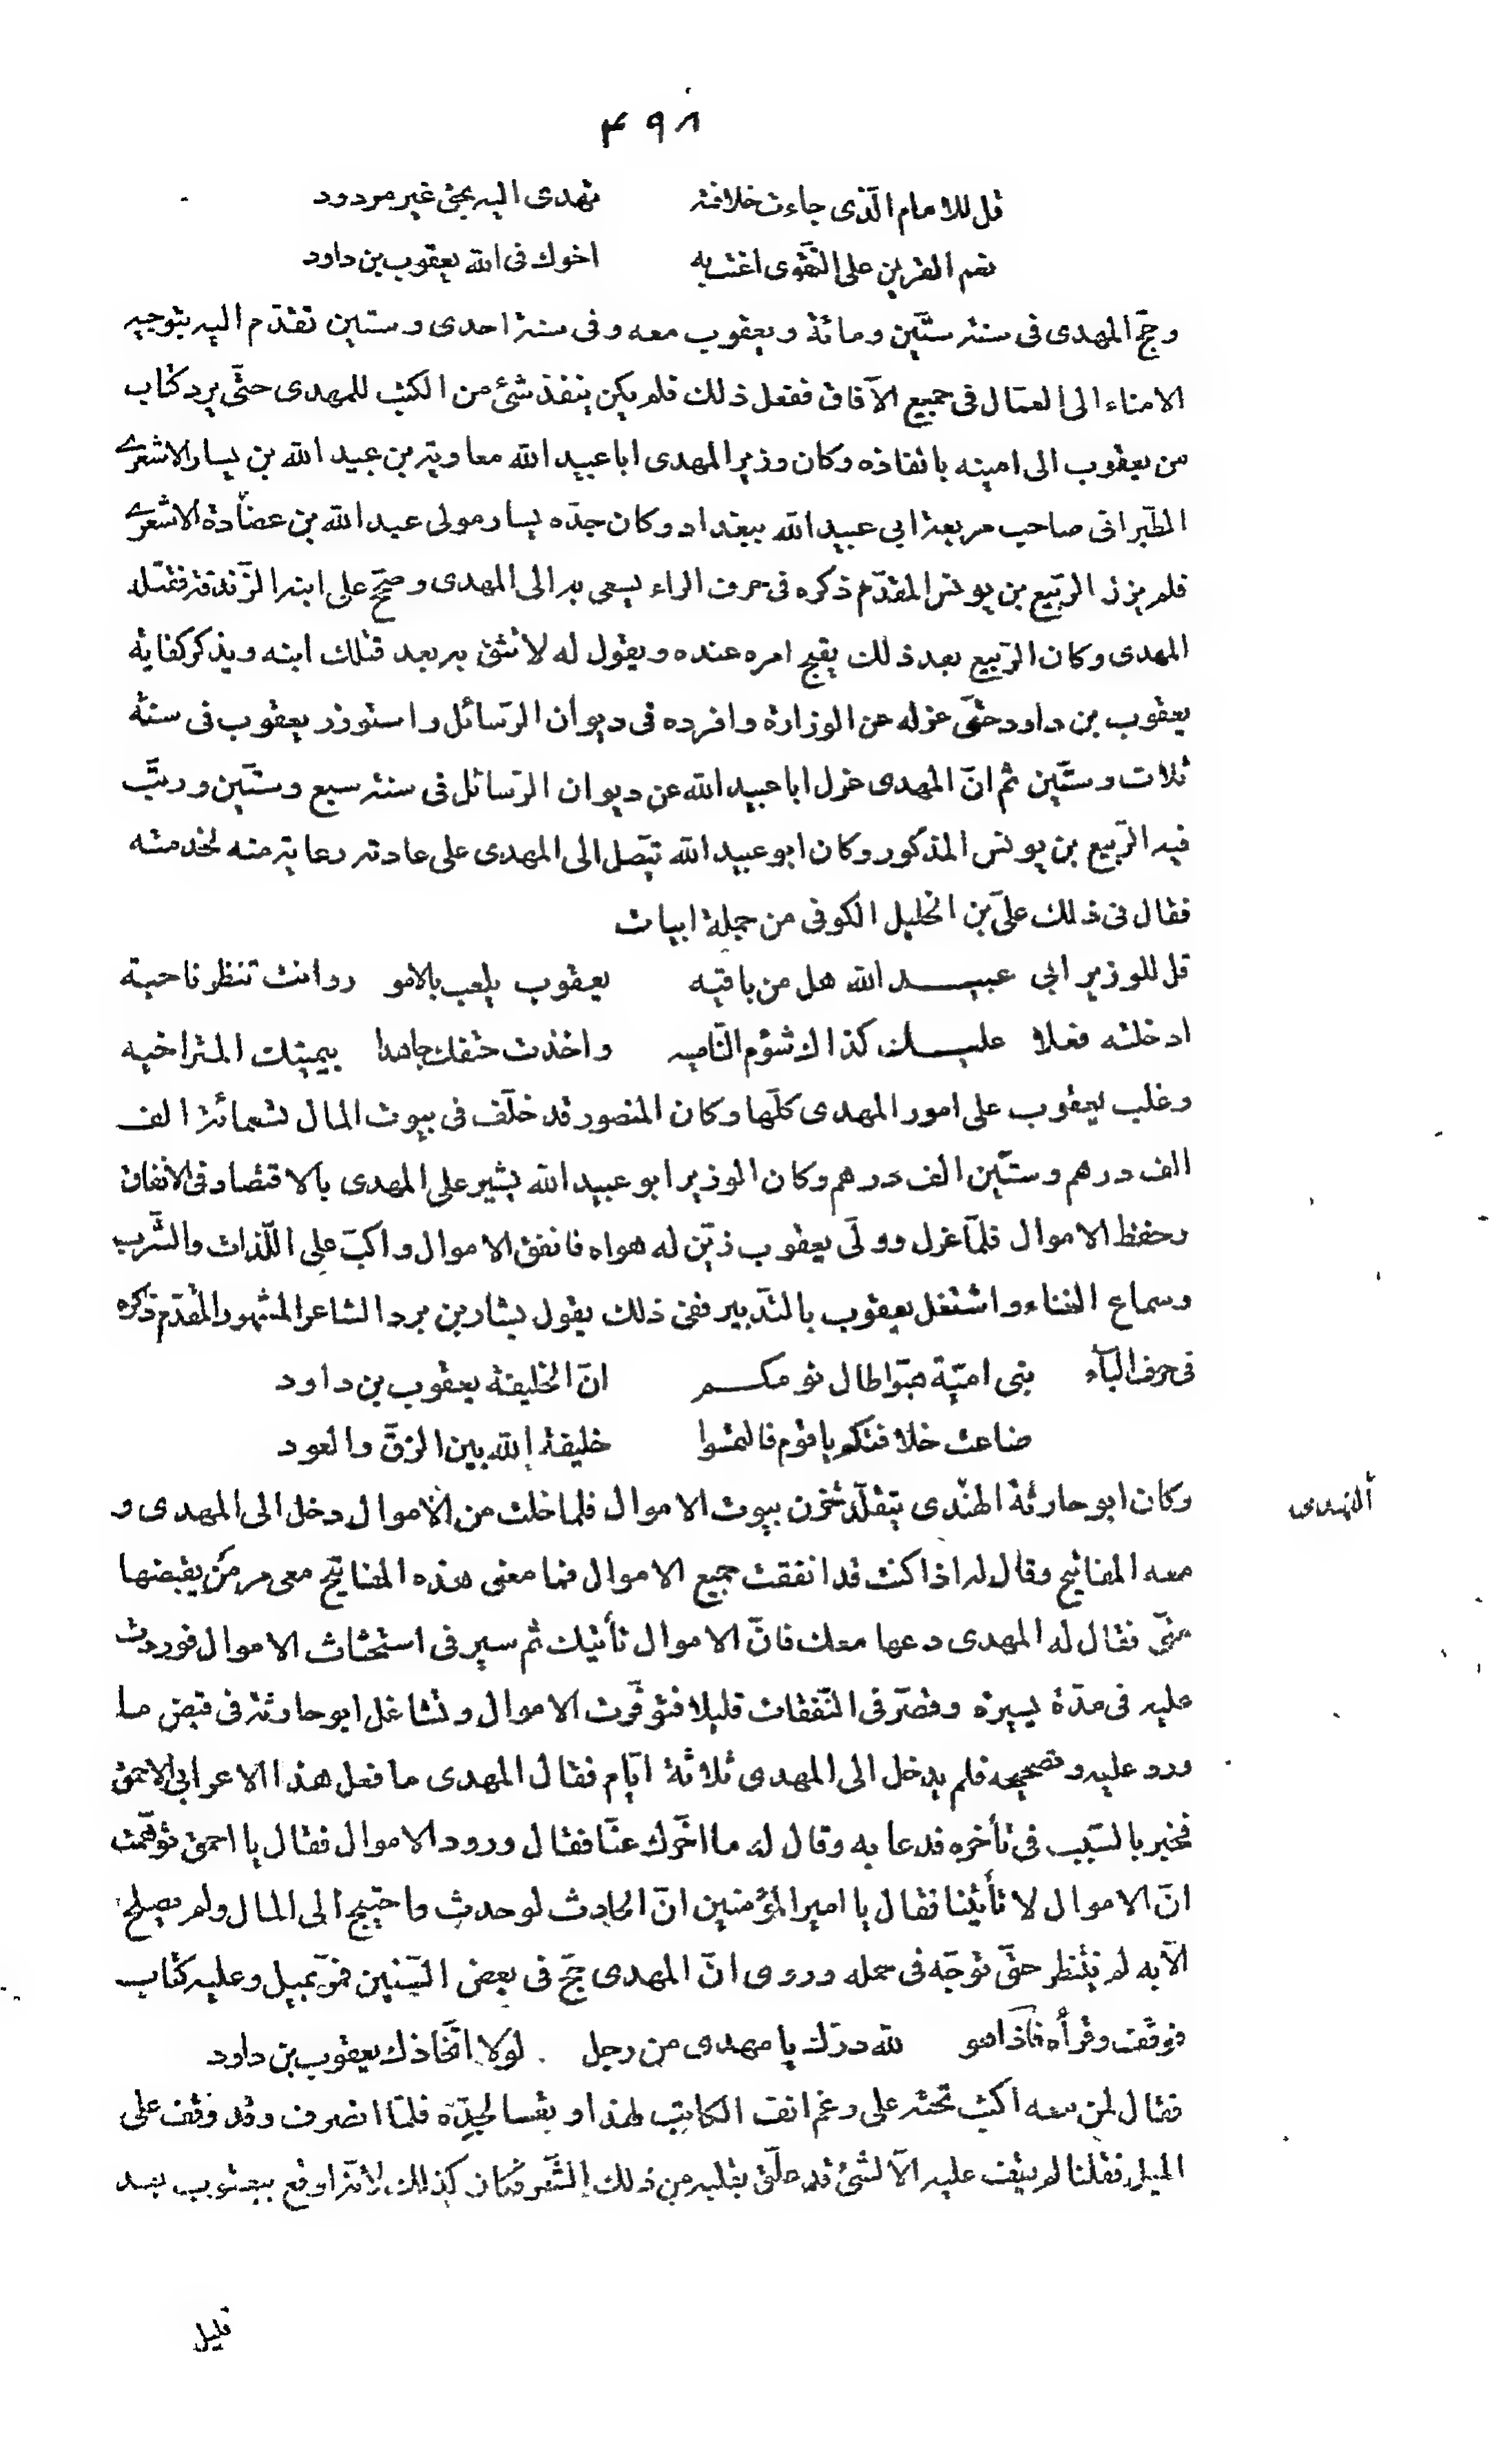 ۴۹۸
قل للامام الّذى جاءت خلافته تهدى اليه بحقّ غير مردود
نعم القرين على التّقوى اعنت به اخوك فى الله يعقوب بن داود
وحجّ المهدى فى سنة ستّين ومائة ويعقوب معه وفى سنة احدى وستين تقدّم اليه بتوجيه
الامناء الى العمّال فى جميع الآفاق ففعل ذلك فلم يكن ينفذ شئ من الكتب للمهدى حتّى يرد كتاب
من يعقوب الى امينه بانفاذه وكان وزير المهدى ابا عبيد الله معاوية بن عبيد الله بن يسار الاشعرى
الطّبرانى صاحب مربعة ابى عبيد الله ببغداد وكان جدّه يسار مولى عبد الله بن عضادة الاشعرى
فلم يزل الرّبيع بن يونس المقدّم ذكره فى حرف الراء يسعى به الى المهدى وصحّح على ابنه الزّندقة فقتله
المهدى وكان الرّبيع بعد ذلك يقبح امره عنده ويقول له لا تثق به بعد قتلك ابنه ويذكر كفاية
يعقوب بن داود حتّى عزله عن الوزارة وافرده فى ديوان الرّسائل واستوزر يعقوب فى سنة
ثلاث وستّين ثم انّ المهدى عزل ابا عبيد الله عن ديوان الرّسائل فى سنة سبع وستّين ورتّب
فيه الرّبيع بن يونس المذكور وكان ابو عبيد الله يتّصل الى المهدى على عادته رعاية منه لخدمته
فقال فى ذلك علىّ بن الخليل الكوفى من جملة ابيات
قل للوزير ابى عبيد الله هل من باقيه يعقوب يلعب بالامو ر وانت تنظر ناحية
ادخلته فعلا عليك كذاك شؤم النّاصيه واخذت حتفك جاهدا بيمينك المتراخيه
وغلب يعقوب على امور المهدى كلّها وكان المنصور قد خلّف فى بيوت المال تسعمائة الف
الف درهم وستّين الف درهم وكان الوزير ابو عبيد الله يشير على المهدى بالاقتصاد فى الانفاق
وحفظ الاموال فلمّا عزل وولّى يعقوب زيّن له هواه فانفق الاموال واكبّ على اللّذات والشّرب
وسماع الغناء واشتغل يعقوب بالتّدبير ففى ذلك يقول بشار بن برد الشاعر المشهور المقدّم ذكره
فى حرف البآء بنى اميّة هبّوا طال نومكم انّ الخليفة يعقوب بن داود
ضاعت خلافتكم يا قوم فالتمسوا خليفة الله بين الزقّ والعود
وكان ابو حارثة الهندى يتقلّد خزن بيوت الاموال فلما خلت من الاموال دخل الى المهدى و
النهدى
معه المفاتيح وقال له اذا كنت قد انفقت جميع الاموال فما معنى هذه المفاتيح معى مر من يقبضها
منّى فقال له المهدى دعها معك فانّ الاموال تأتيك ثم سير فى استحثاث الاموال فوردت
عليه فى مدّة يسيرة وقصّر فى النّفقات قليلا فتوفّرت الاموال وتشاغل ابو حارثة فى قبض ما
ورد عليه وتصحيحه فلم يدخل الى المهدى ثلاثة ايّام فقال المهدى ما فعل هذا الاعرابى الاحمق
فخبر بالسّبب فى تأخره فدعا به وقال له ما اخّرك عنّا فقال ورود الاموال فقال يا احمق توهّمت
انّ الاموال لا تأتينا فقال يا امير المؤمنين انّ الحادث لو حدث واحتيج الى المال ولم يصلح
الّا به لم ينتظر حتّى توجّه فى حمله وروى انّ المهدى حجّ فى بعض السّنين فمرّ بميل وعليه كتاب
فوقّف وقرأه فاذا هو لله درّك يا مهدى من رجل لولا اتّخاذك يعقوب بن داود
فقال لمن معه اكتب تحته على رغم انف الكاتب لهذا وتعسا لجدّه فلمّا انصرف وقد وقف على
الميل فقلنا لم يقف عليه الّا لشئ قد علّق بقلبه من ذلك الشّعر فكان كذلك لانّه اوقع بيعقوب بعد
قليل